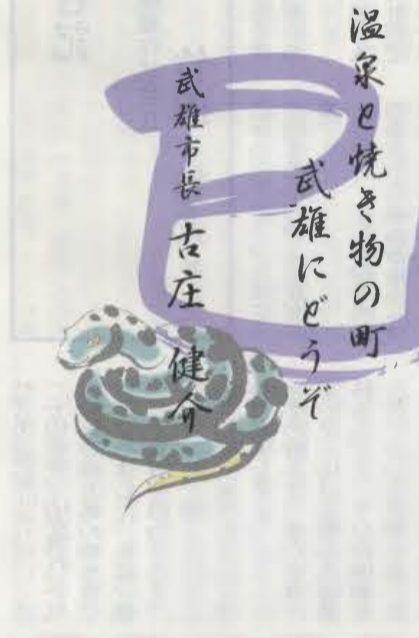 温泉と焼き物の町
武雄にどうぞ
武雄市長 古庄 健介
巳